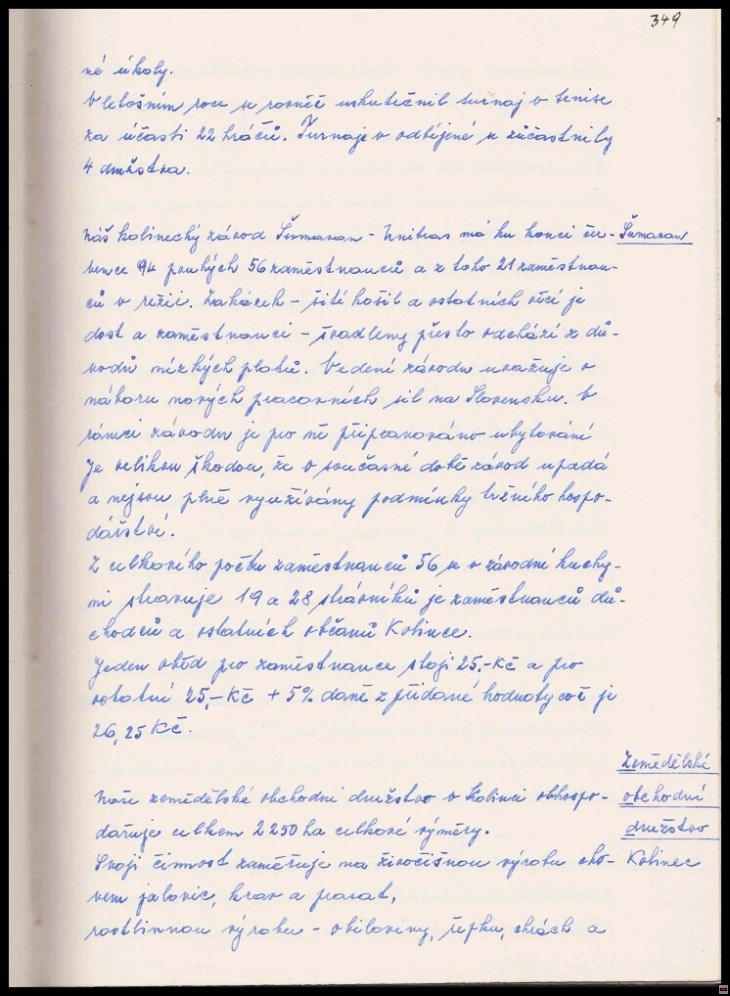 349
né úkoly.
V letošním roce se rovněž uskutečnil turnaj v tenise
za účasti 22 hráčů. Turnaje v odbíjené se zúčastnily
4 družstva.
Náš kolinecký závod Šumavan - Unitras má ku konci čer- Šumavan
vence 94 pouhých 56 zaměstnanců a z toho 21 zaměstnan-
ců v režii. Zakázek - šití košil a ostatních věcí je
dost a zaměstnanci - švadleny přesto odchází z dů-
vodů nízkých platů. Vedení závodu uvažuje o
náboru nových pracovních sil na Slovensku. V
rámci závodu je pro ně připravováno ubytování
Je velikou škodou, že v současné době závod upadá
a nejsou plně využívány podmínky tržního hospo-
dářství.
Z celkového počtu zaměstnanců 56 se v závodní kuchy-
ni stravuje 19 a 28 strávníků je zaměstnanců dů-
chodců a ostatních občanů Kolince.
Jeden oběd pro zaměstnance stojí 25,-Kč a pro
ostatní 25,-Kč + 5% daně z přidané hodnoty což je
26,25 Kč.
Zemědělské
Naše zemědělské obchodní družstvo v Kolinci obhospo- obchodní
dařuje celkem 2250 ha celkové výměry. družstvo
Svoji činnost zaměřuje na živočišnou výrobu cho- Kolinec
vem jalovic, krav a prasat,
rostlinnou výrobu - obiloviny, řepku, a